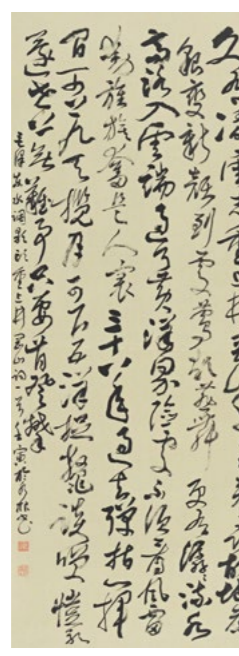 久有凌雲志重上井冈山千里来尋故地舊
貌變新颜到處莺歌燕舞更有潺潺流水
高路入雲端過了黄洋界險處不须看風雷
動旌旗奮是人寰三十八年過去彈指一揮
間可上九天揽月可下五洋捉鳖談笑凯歌
還世上無難事只要肯登攀
毛澤東水调歌頭重上井冈山词一首壬寅